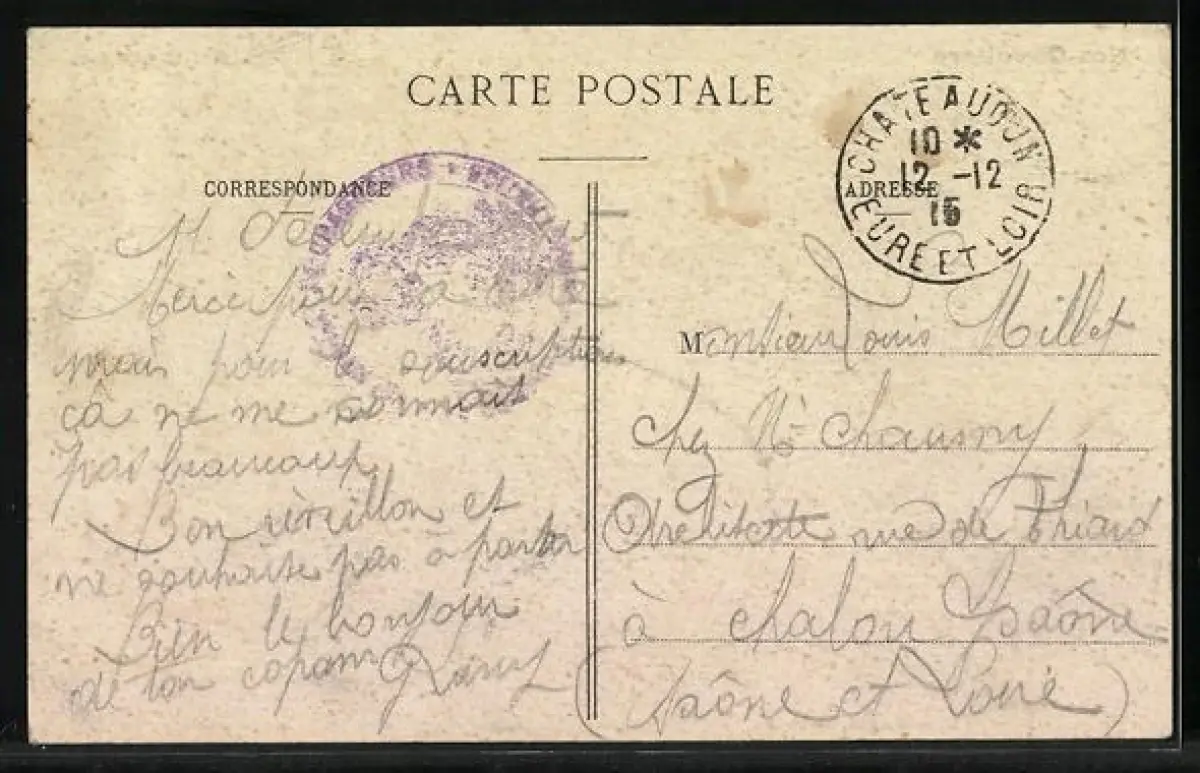 CARTE POSTALE
CORRESPONDANCE
Merci pour ta
mais pour le souscription
çâ ne me donnait
pas beaucoup
Bon réveillon et
ne souhaite pas à partir
Bien le bonjour
de ton copain
ADRESSE
CHATEAUDUN
10 *
12 -12
15
EURE ET LOIR
Monsieur Louis Millet
chez Mr Chausny
Architecte rue de Thiard
à Chalon s/Saône
(Saône et Loire)